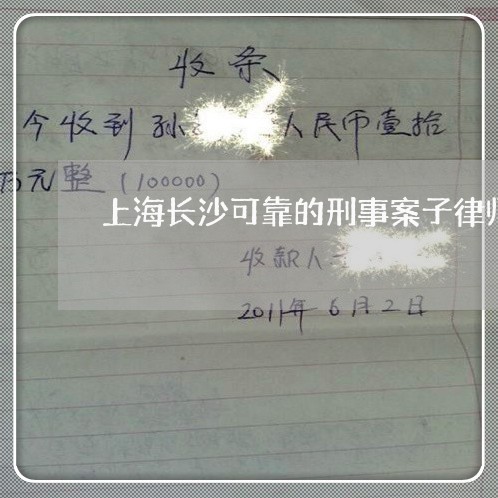 收条
今收到孙 人民币壹拾
万元整(100000)
上海长沙可靠的刑事案子律师
收款人
2011年6月2日